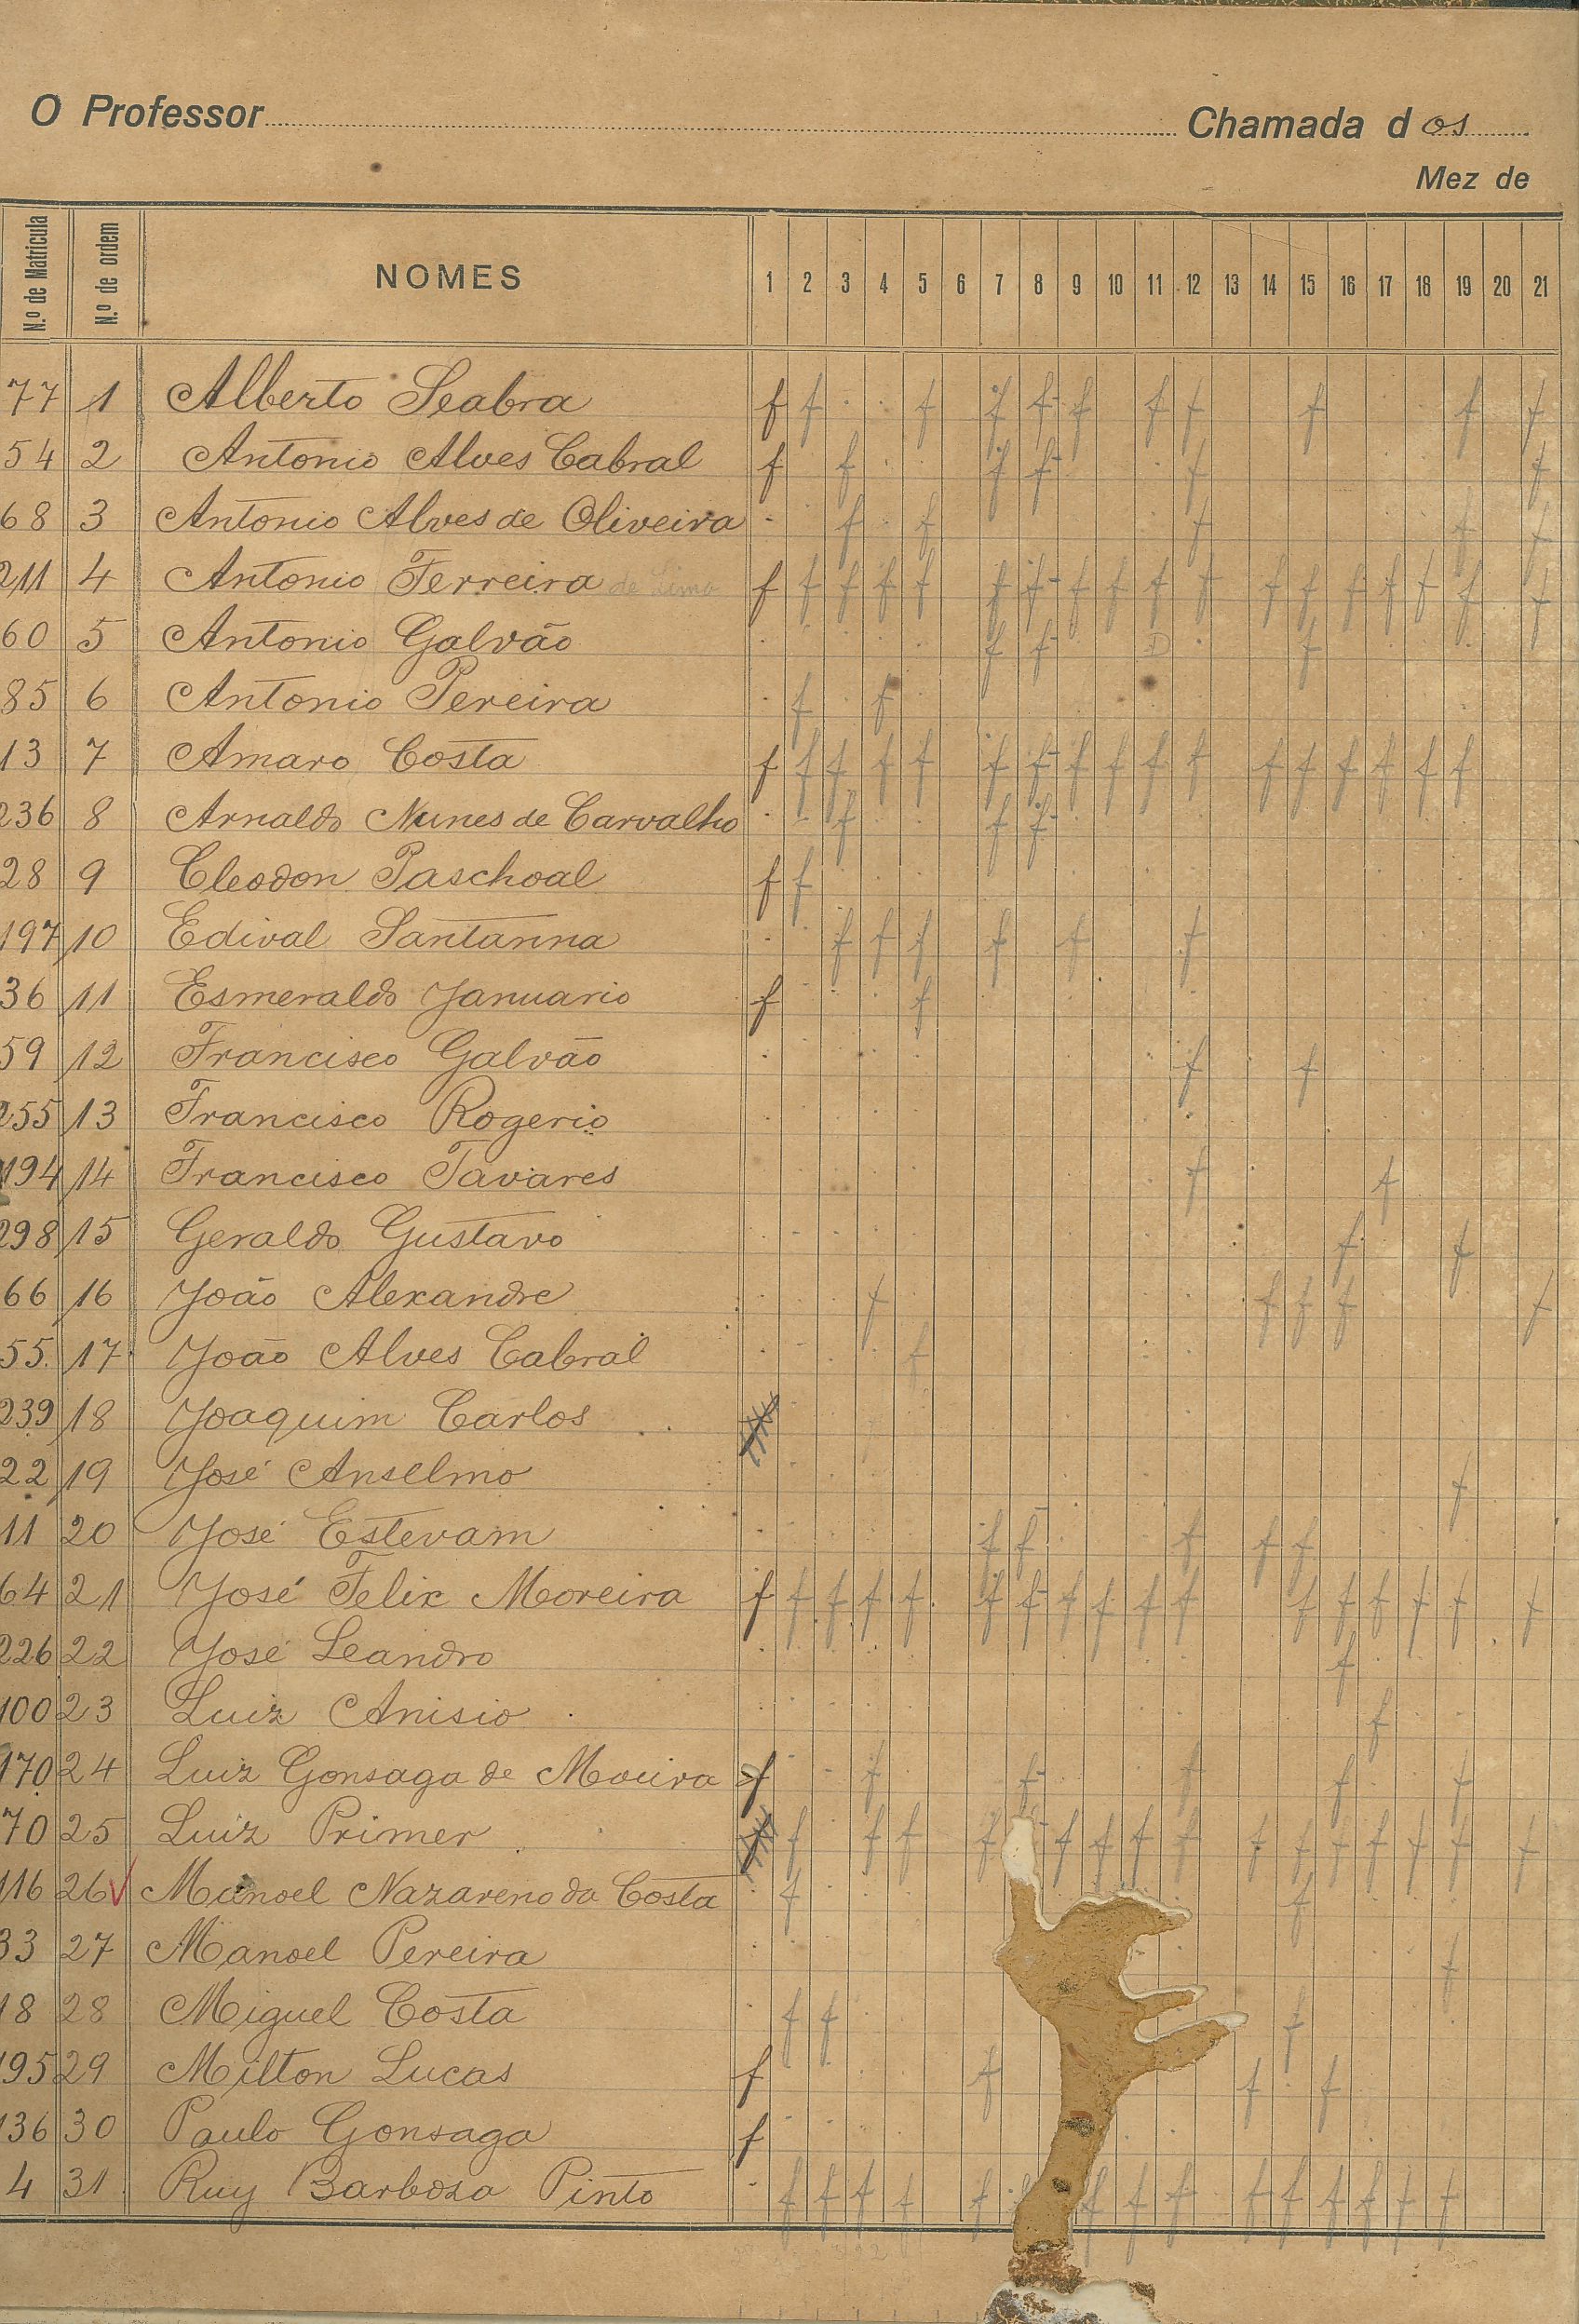 O Professor Chamada dos
Mez de
N.º de Matricula N.º de ordem NOMES 1 2 3 4 5 6 7 8 9 10 11 12 13 14 15 16 17 18 19 20 21
77 1 Alberto Seabra f f f f f f f f f f f
54 2 Antonio Alves Cabral f f f f f f
68 3 Antonio Alves de Oliveira f f f f f
211 4 Antonio Ferreira de Lima f f f f f f f f f f f f f f f f f f
60 5 Antonio Galvão f f D f
85 6 Antonio Pereira f f
13 7 Amaro Costa f f f f f f f f f f f f f f f f f
236 8 Arnaldo Nunes de Carvalho f f f
28 9 Cleodon Paschoal f f
197 10 Edival Santanna f f f f f f
36 11 Esmeraldo Januario f f
59 12 Francisco Galvão f f
255 13 Francisco Rogerio
194 14 Francisco Tavares f f
298 15 Geraldo Gustavo f f
66 16 João Alexandre f f f f f
55 17 João Alves Cabral f
239 18 Joaquim Carlos
22 19 José Anselmo f
11 20 José Estevam f f f f f
64 21 José Felix Moreira f f f f f f f f f f f f f f f f f
226 22 José Leandro f
100 23 Luiz Anisio f
170 24 Luiz Gonsaga de Moura f f f f f f
70 25 Luiz Primer f f f f f f f f f f f f f f f
116 26 Manoel Nazareno da Costa f f
33 27 Manoel Pereira f
18 28 Miguel Costa f f f
195 29 Milton Lucas f f f f
136 30 Paulo Gonsaga f
4 31 Ruy Barbosa Pinto f f f f f f f f f f f f f f